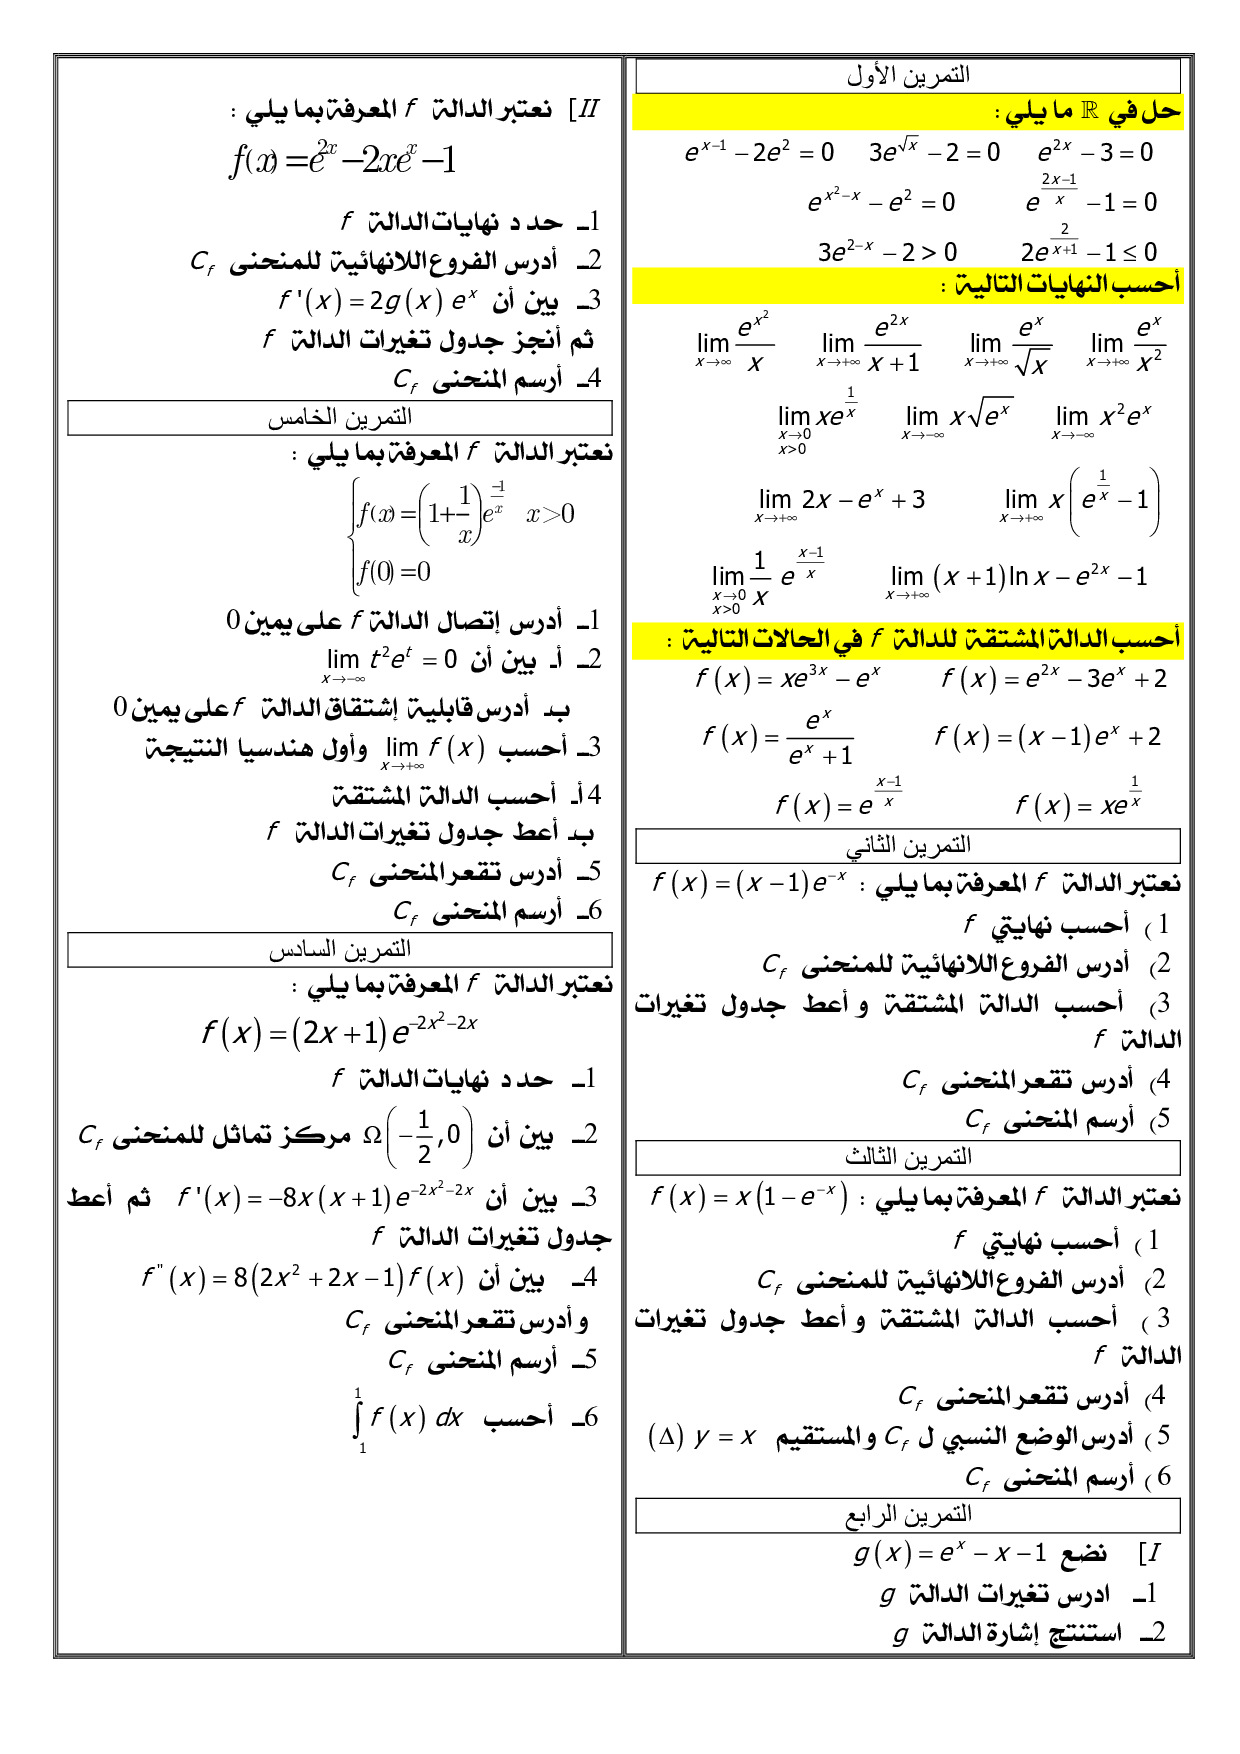 التمرين الأول
حل في ℝ ما يلي :
e^{2x} − 3 = 0    3e^{√x} − 2 = 0    e^{x−1} − 2e^2 = 0
e^{(2x−1)/x} − 1 = 0    e^{x^2−x} − e^2 = 0
2e^{2/(x+1)} − 1 ≤ 0    3e^{2−x} − 2 > 0
أحسب النهايات التالية :
lim_{x→+∞} e^x/x^2    lim_{x→+∞} e^x/√x    lim_{x→+∞} e^{2x}/(x+1)    lim_{x→∞} e^{x^2}/x
lim_{x→−∞} x^2e^x    lim_{x→−∞} x√(e^x)    lim_{x→0, x>0} xe^{1/x}
lim_{x→+∞} x(e^{1/x} − 1)    lim_{x→+∞} 2x − e^x + 3
lim_{x→+∞} (x+1)ln x − e^{2x} − 1    lim_{x→0, x>0} 1/x e^{(x−1)/x}
أحسب الدالة المشتقة للدالة f في الحالات التالية :
f(x) = e^{2x} − 3e^x + 2    f(x) = xe^{3x} − e^x
f(x) = (x−1)e^x + 2    f(x) = e^x/(e^x + 1)
f(x) = xe^{1/x}    f(x) = e^{(x−1)/x}
التمرين الثاني
نعتبر الدالة f المعرفة بما يلي : f(x) = (x−1)e^{−x}
1) أحسب نهايتي f
2) أدرس الفروع اللانهائية للمنحنى C_f
3) أحسب الدالة المشتقة و أعط جدول تغيرات
الدالة f
4) أدرس تقعر المنحنى C_f
5) أرسم المنحنى C_f
التمرين الثالث
نعتبر الدالة f المعرفة بما يلي : f(x) = x(1 − e^{−x})
1) أحسب نهايتي f
2) أدرس الفروع اللانهائية للمنحنى C_f
3) أحسب الدالة المشتقة و أعط جدول تغيرات
الدالة f
4) أدرس تقعر المنحنى C_f
5) أدرس الوضع النسبي ل C_f و المستقيم (Δ) y = x
6) أرسم المنحنى C_f
التمرين الرابع
I] نضع g(x) = e^x − x − 1
1ـ ادرس تغيرات الدالة g
2ـ استنتج إشارة الدالة g
II] نعتبر الدالة f المعرفة بما يلي :
f(x) = e^{2x} − 2xe^x − 1
1ـ حدد نهايات الدالة f
2ـ أدرس الفروع اللانهائية للمنحنى C_f
3ـ بين أن f'(x) = 2g(x) e^x
ثم أنجز جدول تغيرات الدالة f
4ـ أرسم المنحنى C_f
التمرين الخامس
نعتبر الدالة f المعرفة بما يلي :
{ f(x) = (1 + 1/x)e^{−1/x}    x > 0
f(0) = 0
1ـ أدرس إتصال الدالة f على يمين 0
2ـ أـ بين أن lim_{x→−∞} t^2e^t = 0
بـ أدرس قابلية إشتقاق الدالة f على يمين 0
3ـ أحسب lim_{x→+∞} f(x) وأول هندسيا النتيجة
4 أـ أحسب الدالة المشتقة
بـ أعط جدول تغيرات الدالة f
5ـ أدرس تقعر المنحنى C_f
6ـ أرسم المنحنى C_f
التمرين السادس
نعتبر الدالة f المعرفة بما يلي :
f(x) = (2x+1)e^{−2x^2−2x}
1ـ حدد نهايات الدالة f
2ـ بين أن Ω(−1/2, 0) مركز تماثل للمنحنى C_f
3ـ بين أن f'(x) = −8x(x+1)e^{−2x^2−2x} ثم أعط
جدول تغيرات الدالة f
4ـ بين أن f"(x) = 8(2x^2 + 2x − 1)f(x)
و أدرس تقعر المنحنى C_f
5ـ أرسم المنحنى C_f
6ـ أحسب ∫_1^1 f(x) dx